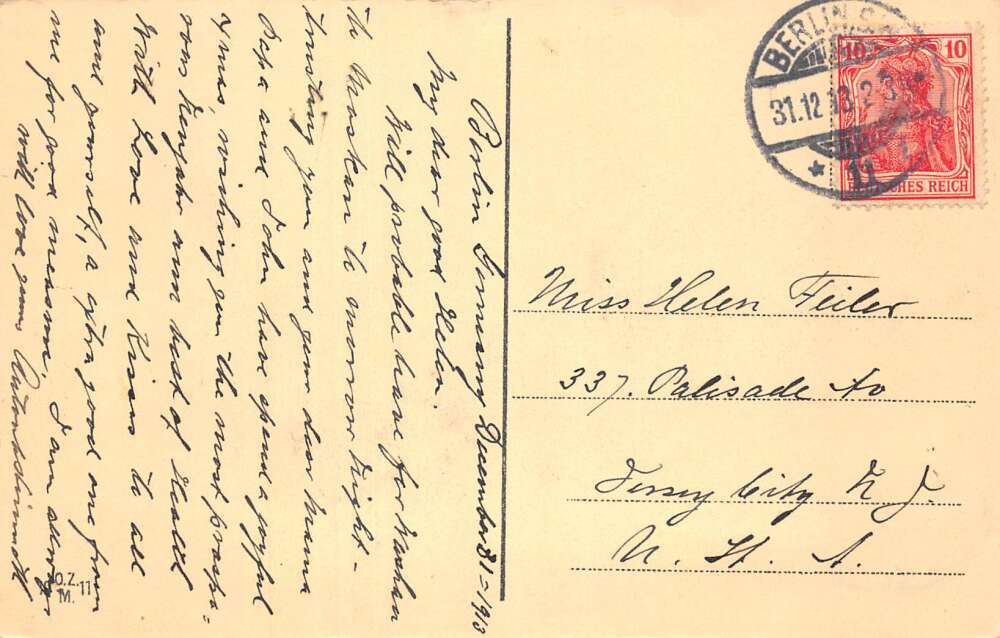 Berlin Germany December 31 – 1913
My dear good Helen.
Will probable leave for Warshau
to Moskau to morrow Night –
trusting you and your dear Mama
Papa and John have spend a joyful
Xmas, wishing you the most prospe-
rous Newjahr and best of Health
With Love and Kisses to all
and yourself, a extra good one from
me for good measure. I am always
with love your
BERLIN
31.12.13. 2-3
* 11
10 10
DEUTSCHES REICH
Miss Helen Feiler
337. Palisade Av
Jersey City N J.
U. St. A.
O.Z.M. 11